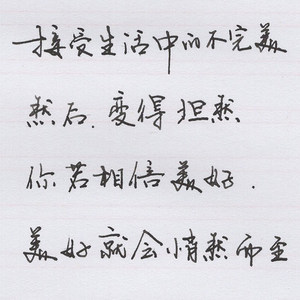 接受生活中的不完美
然后.变得坦然
你若相信美好.
美好就会悄然而至